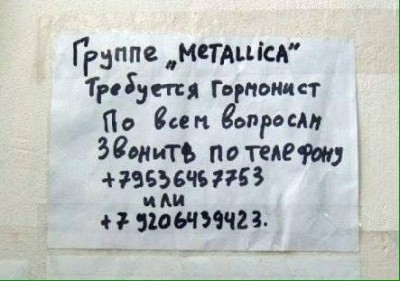 Группе „METALLiCA"
Требуется гормонист
По всем вопросам
Звонитв по телефону
+79536457753
или
+7 9206439423.